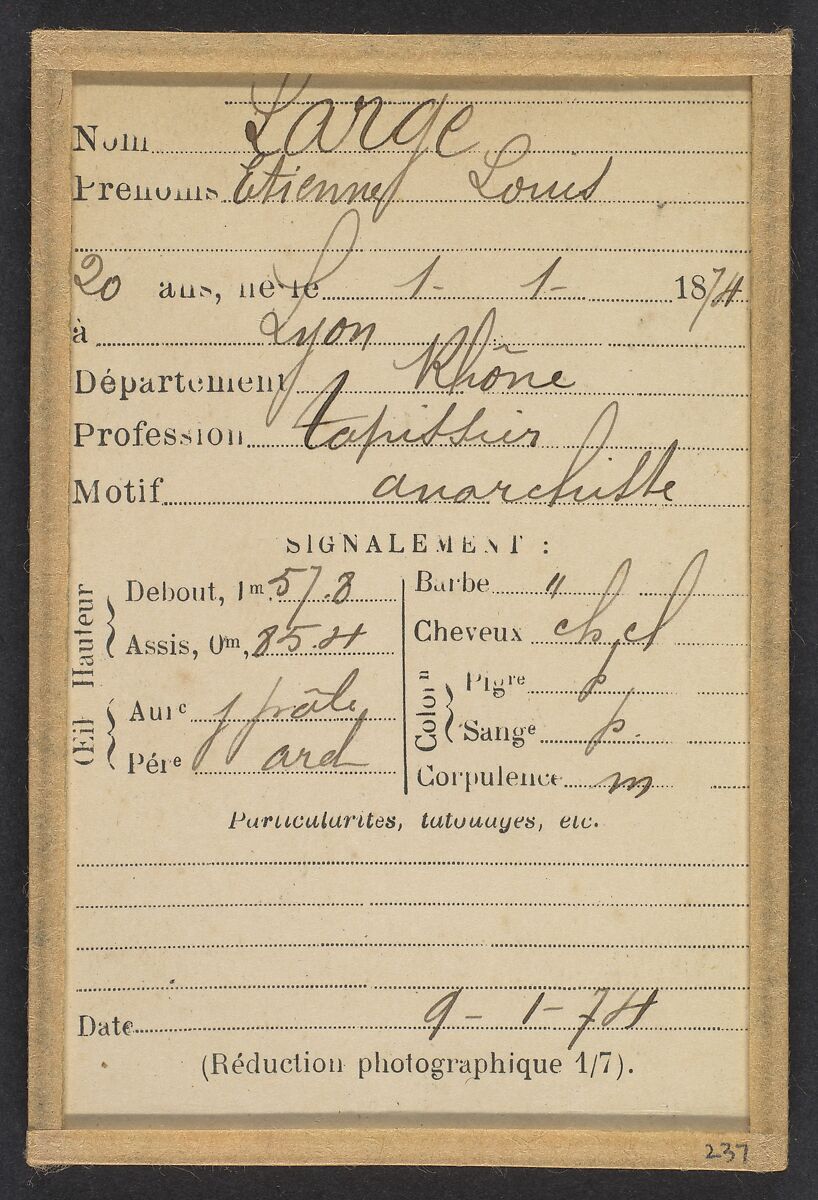 Nom Large
Prénoms Etienne Louis
20 ans, né le 1- 1- 1874
à Lyon
Département Rhône
Profession tapissier
Motif anarchiste
SIGNALEMENT :
Hauteur
Debout, 1m, 57.8
Assis, 0m, 85.4
Œil
Aurᵉ j pâle
Périᵉ ard
Barbe "
Cheveux ch cl
Colorⁿ
Pigre p
Sangᵉ p.
Corpulence m
Particularités, tatouages, etc.
Date 9- 1- 74
(Réduction photographique 1/7).
237